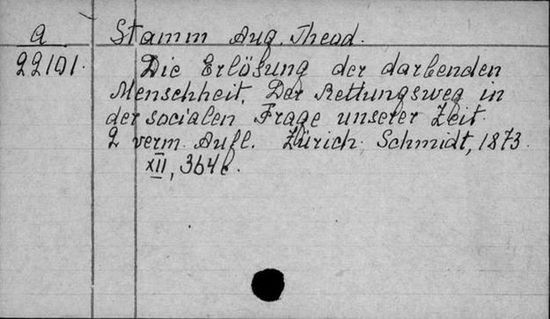 A Stamm Aug. Theod.
22101. Die Erlösung der darbenden
Menschheit. Der Rettungsweg in
der socialen Frage unserer Zeit.
2 verm. Aufl. Zürich. Schmidt, 1873.
XII, 364 c.